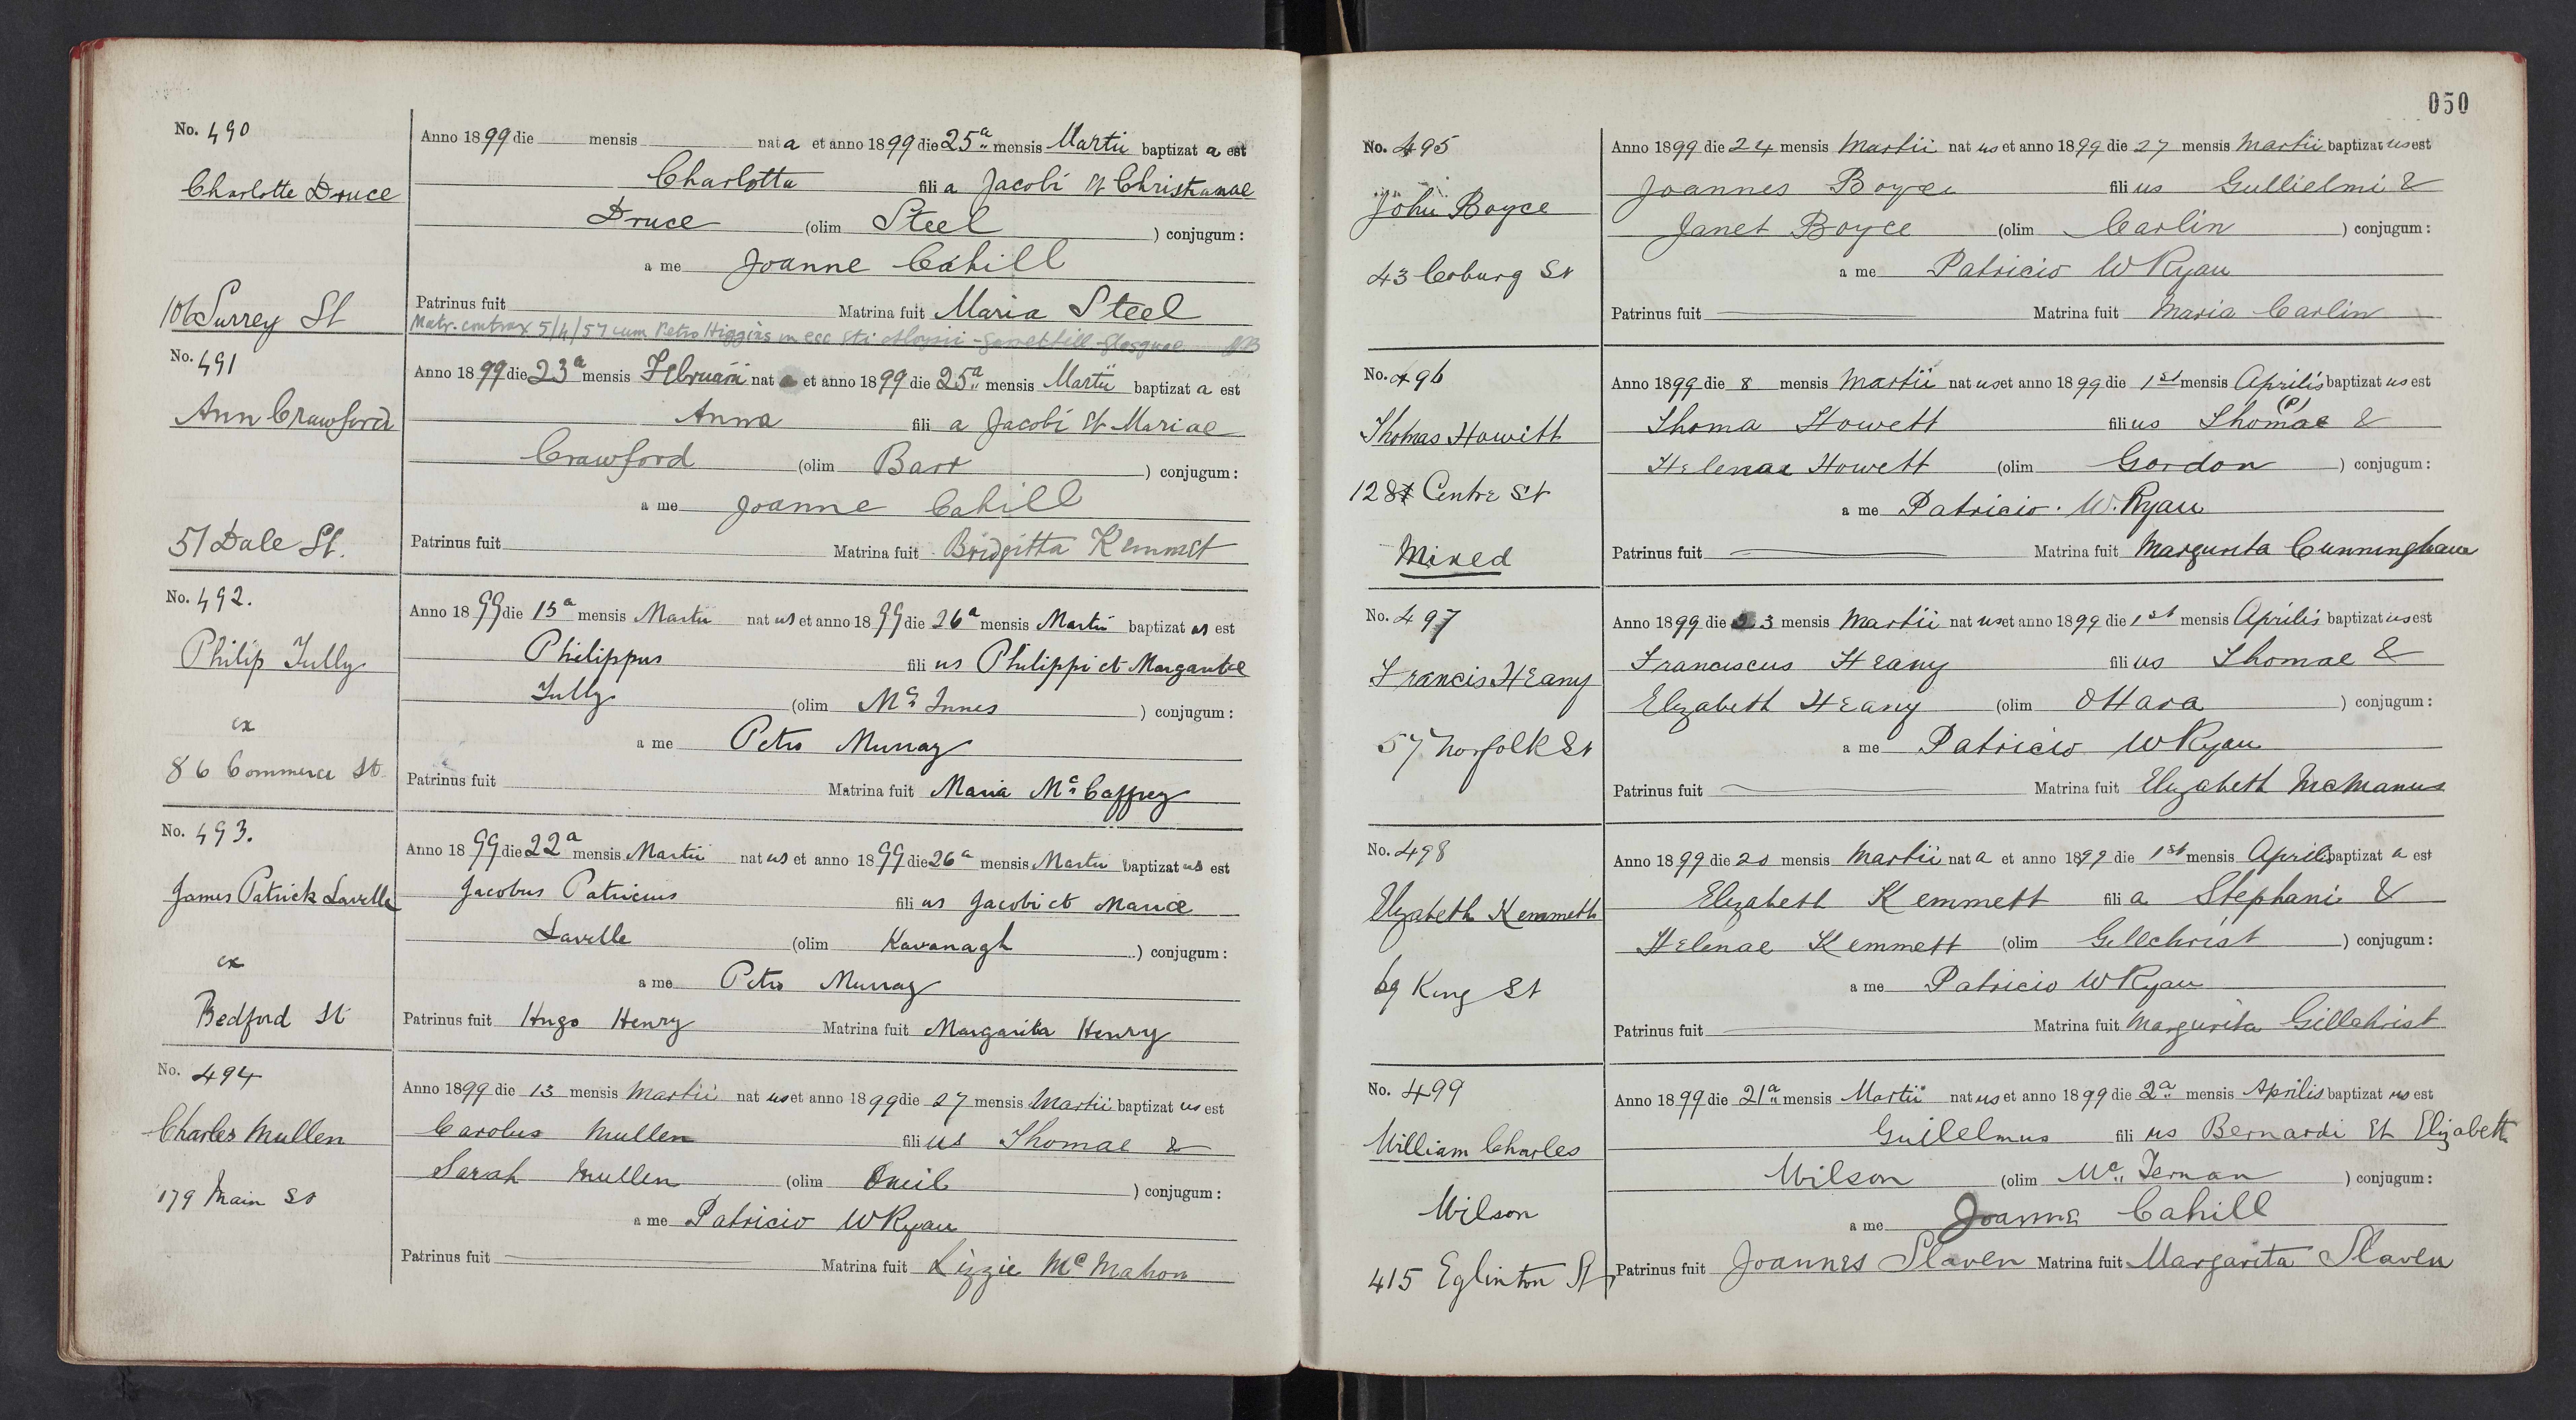 No. 490
Anno 1899 die mensis nata et anno 1899 die 25a mensis Martii baptizat a est
Charlotte Druce
Charlotta fili a Jacobi et Christianae
Druce (olim Steel ) conjugum:
a me Joanne Cahill
106 Surrey St
Patrinus fuit Matrina fuit Maria Steel
Matr. contrax 5/4/57 cum Petro Higgins in ecc Sti Aloysii - Garnethill - Glasguae
No. 491
Anno 1899 die 23a mensis Februarii nat a et anno 1899 die 25a mensis Martii baptizat a est
Ann Crawford
Anna fili a Jacobi et Mariae
Crawford (olim Barr ) conjugum:
a me Joanne Cahill
51 Dale St.
Patrinus fuit Matrina fuit Bridgitta Kemmet
No. 492.
Anno 1899 die 15a mensis Martii nat us et anno 1899 die 26a mensis Martii baptizat us est
Philip Tully
Philippus fili us Philippi et Margaritae
Tully (olim Mc Innes ) conjugum:
ex
a me Petro Murray
86 Commerce St
Patrinus fuit Matrina fuit Maria Mc Caffrey
No. 493.
Anno 1899 die 22a mensis Martii nat us et anno 1899 die 26a mensis Martii baptizat us est
James Patrick Lavelle
Jacobus Patricius fili us Jacobi et Mariae
Lavelle (olim Kavanagh ) conjugum:
ex
a me Petro Murray
Bedford St
Patrinus fuit Hugo Henry Matrina fuit Margarita Henry
No. 494
Anno 1899 die 13 mensis Martii nat us et anno 1899 die 27 mensis Martii baptizat us est
Charles Mullen
Carolus Mullen fili us Thomae &
Sarah Mullen (olim Oneil ) conjugum:
179 Main St
a me Patricio W Ryan
Patrinus fuit Matrina fuit Lizzie Mc Mahon
050
No. 495
Anno 1899 die 24 mensis Martii nat us et anno 1899 die 27 mensis Martii baptizat us est
John Boyce
Joannes Boyce fili us Gullielmi &
Janet Boyce (olim Carlin ) conjugum:
43 Coburg St
a me Patricio W Ryan
Patrinus fuit Matrina fuit Maria Carlin
No. 496
Anno 1899 die 8 mensis Martii nat us et anno 1899 die 1st mensis Aprilis baptizat us est
Thomas Howitt
(P)
Thoma Howett fili us Thomae &
Helenae Howett (olim Gordon ) conjugum:
128 Centre St
a me Patricio. W. Ryan
Mixed
Patrinus fuit Matrina fuit Margurita Cunningham
No. 497
Anno 1899 die 23 mensis Martii nat us et anno 1899 die 1st mensis Aprilis baptizat us est
Francis Heany
Franciscus Heany fili us Thomae &
Elizabeth Heany (olim OHara ) conjugum:
57 Norfolk St
a me Patricio W Ryan
Patrinus fuit Matrina fuit Elizabeth McManus
No. 498
Anno 1899 die 20 mensis Martii nat a et anno 1899 die 1st mensis Aprilis baptizat a est
Elizabeth Kemmett
Elizabeth Kemmett fili a Stephani &
Helenae Kemmett (olim Gillchrist ) conjugum:
69 King St
a me Patricio W Ryan
Patrinus fuit Matrina fuit Margurita Gillchrist
No. 499
Anno 1899 die 21a mensis Martii nat us et anno 1899 die 2a mensis Aprilis baptizat us est
William Charles
Guilelmus fili us Bernardi et Elizabeth
Wilson (olim Mc Ternan ) conjugum:
Wilson
a me Joanne Cahill
415 Eglinton St
Patrinus fuit Joannes Slaven Matrina fuit Margarita Slaven